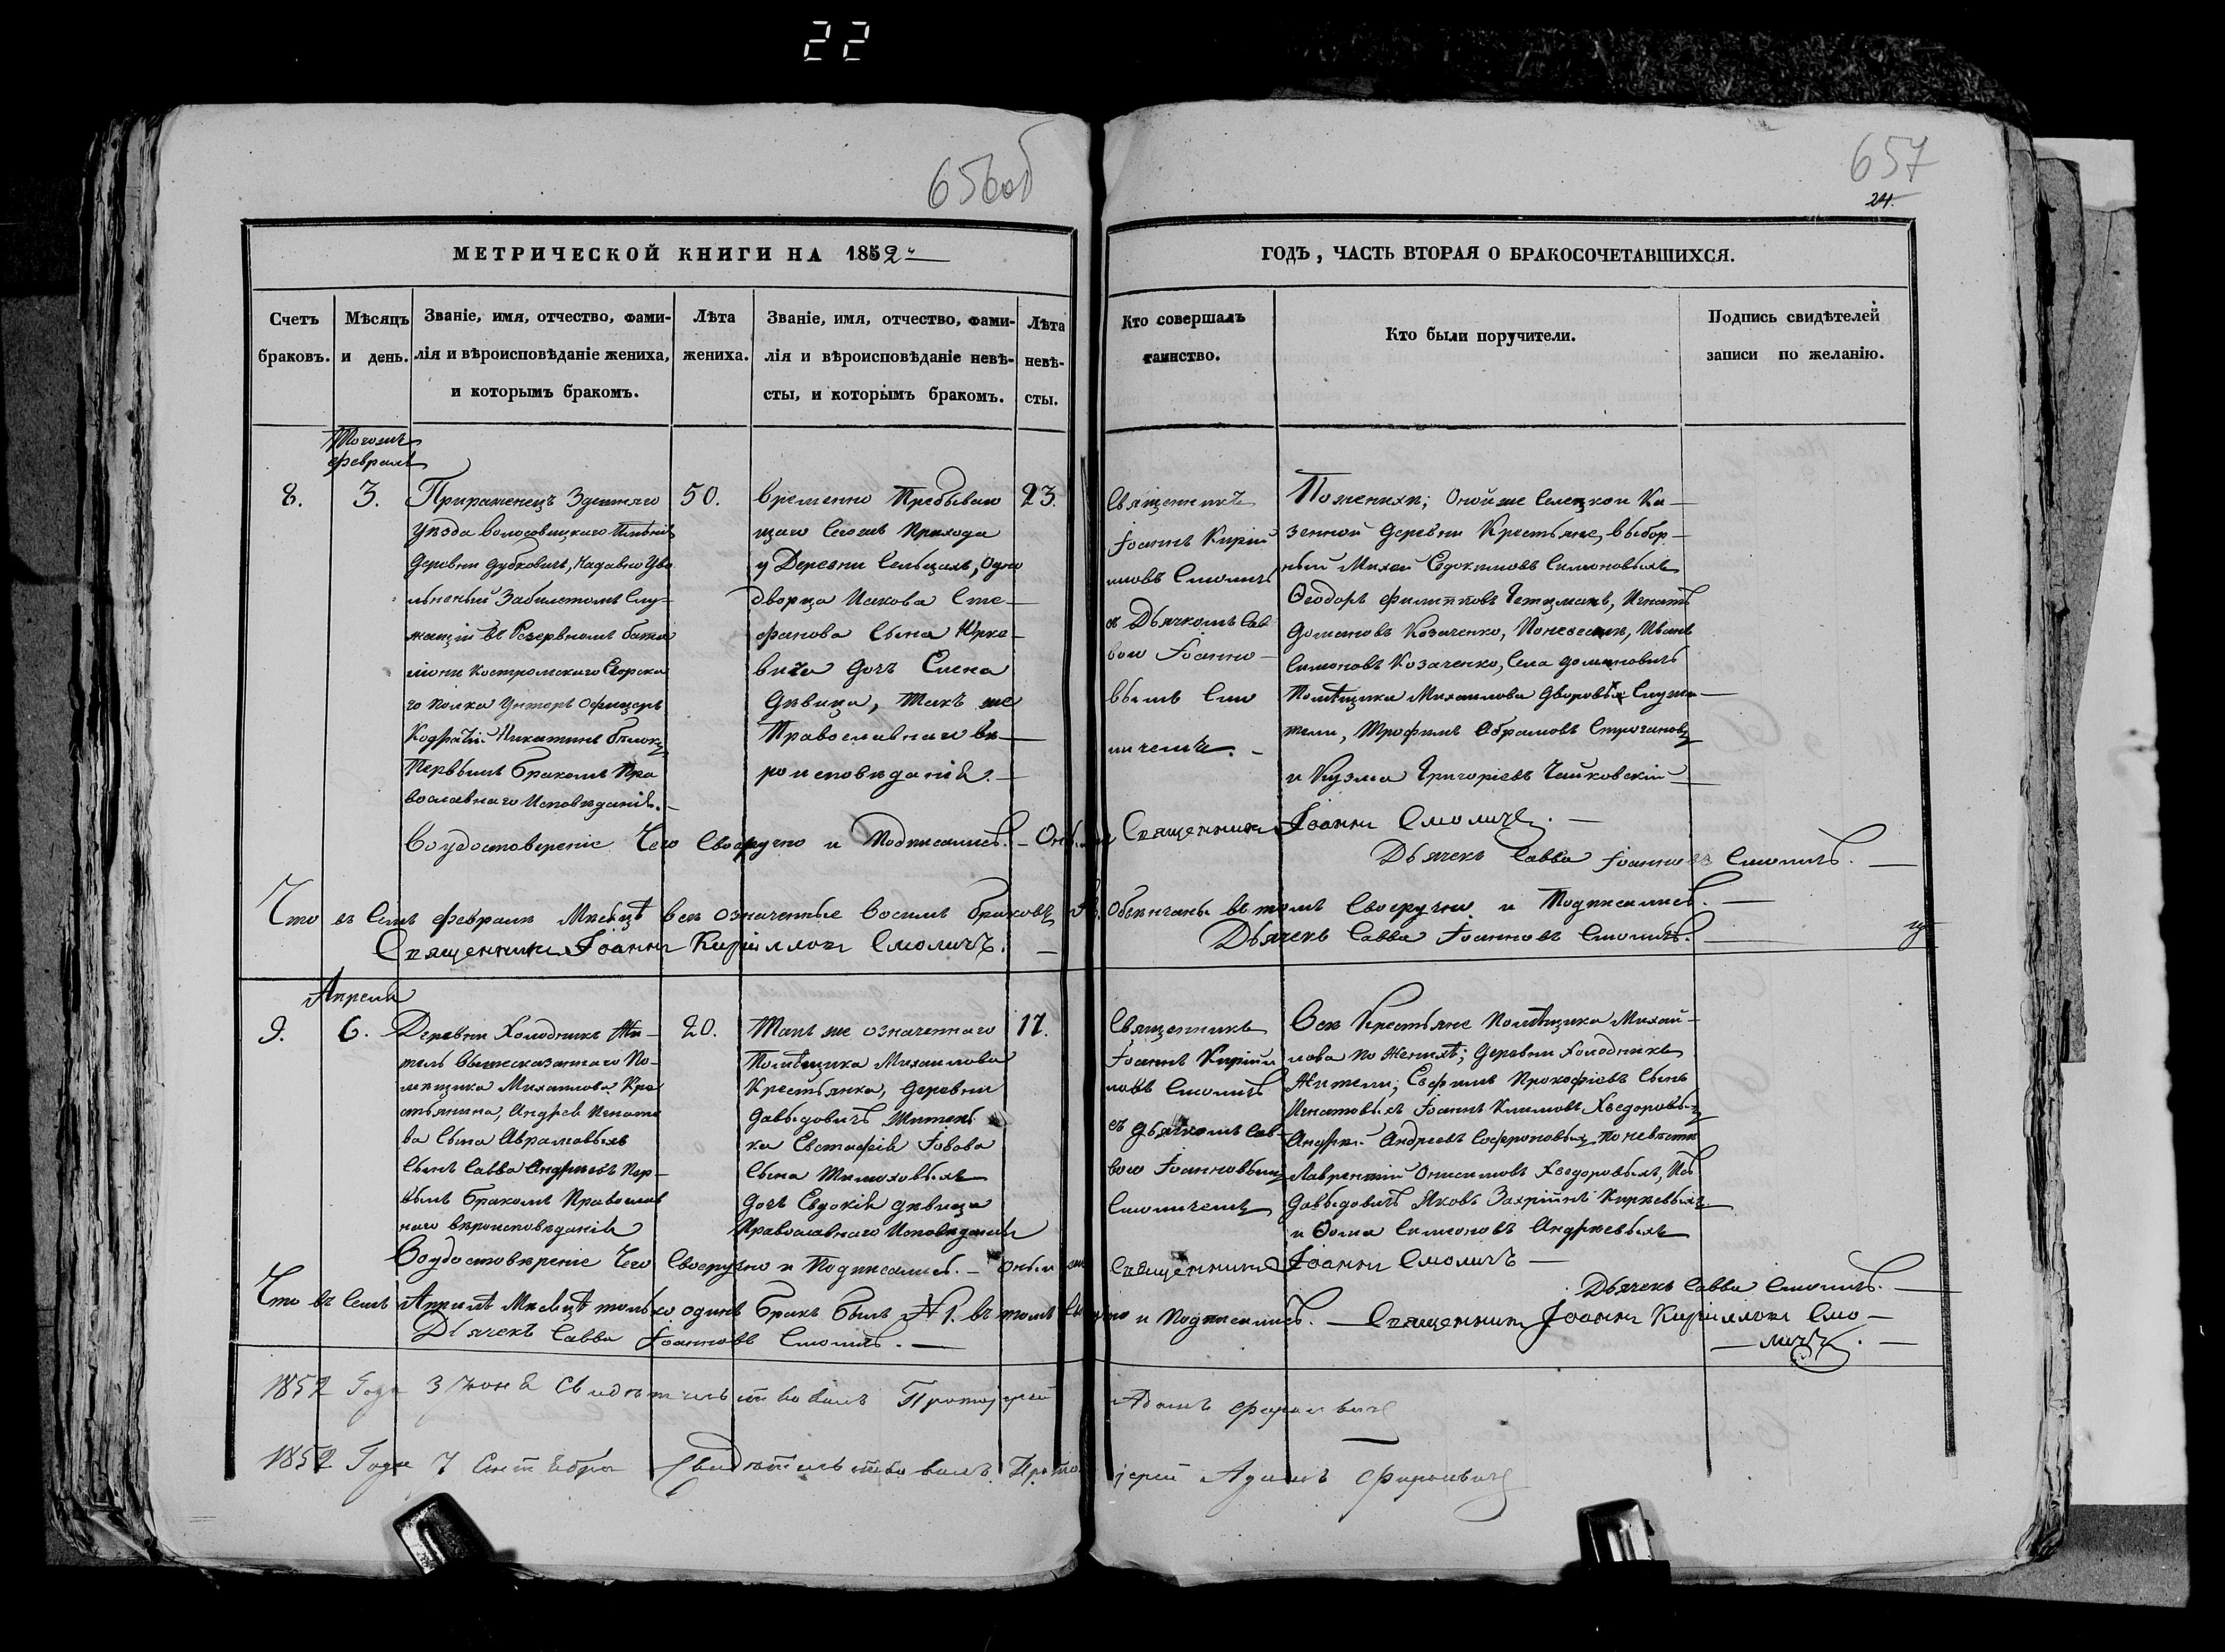 22
656об
657
24.
МЕТРИЧЕСКОЙ КНИГИ НА 1852
ГОДЪ, ЧАСТЬ ВТОРАЯ О БРАКОСОЧЕТАВШИХСЯ.
Счетъ браковъ.
Мѣсяцъ и день.
Званіе, имя, отчество, фами-
лія и вѣроисповѣданіе жениха,
и которымъ бракомъ.
Лѣта
жениха.
Званіе, имя, отчество, фами-
лія и вѣроисповѣданіе невѣ-
сты, и которымъ бракомъ.
Лѣта
невѣ-
сты.
Кто совершалъ
таинство.
Кто были поручители.
Подпись свидѣтелей
записи по желанію.
февраля
8.
3.
уѣзда
Деревни Дубковичъ,
льненый Забилетомъ Слу-
жащій въ Резервномъ Бата
ліони Костромскаго Егорска
го полка Унтеръ Офицеръ
Никитинъ
Первымъ бракомъ Пра
вославнаго Исповѣданія.
50.
Временно Пребываю
щаго Сегожъ Прихода
у Деревни Сельцахъ, Одно
дворца Иакова Сте-
фанова Сына Юрке-
вича дочъ Елена
Дѣвица, Такъ же
Православнаго вѣ-
роисповѣданія.
23.
Священникъ
Іоаннъ Кирил
ловъ Смоличъ
съ Дьячкомъ Сав
вою Іоанно-
вымъ Смо
личемъ.
зенной деревни Крестьяне, выбор-
ный Михей Евдокимовъ Симоновыхъ
Ѳеодоръ Филипповъ Игнатъ
Домановъ Козаченко, Поневестѣ, Иванъ
Симоновъ Козаченко, Села Домановичъ
Помѣщика Михаилова Дворовыя Служи-
тели, Трофимъ Абрамовъ
и Кузма Григоріевъ Чайковскій
Воудостовереніе Чего Своеручно и Подписались.
Священникъ Іоаннъ Смоличъ.
Дьячекъ Савва Іоанновъ Смоличъ.
Что въ Семъ Февралѣ Мѣсяцѣ всѣ означенные восимъ браковъ Обвенчаны въ томъ Своеручно и Подписались.
Священникъ Іоаннъ Кирилловъ Смоличъ.
Дьячекъ Савва Іоанновъ Смоличъ.
Апреля
9.
6.
Деревни Холодникъ Жи-
тель Вышесказаннаго По-
мѣщика Михаилова Кре
стьянина, Андрея Игнато
ва Сына Аврамовыхъ
Сынъ Савва Андреевъ Пер-
вымъ бракомъ Православ
наго вѣроисповѣданія
20.
Такъ же означеннаго
Помѣщика Михаилова
Крестьянка, Деревни
Давыдовичъ Житель
ка Евстафія Іовова
Сына Тимоховыхъ
дочъ Евдокія дѣвица
Православнаго Исповѣданія
17.
Священникъ
Іоаннъ Кирил
ловъ Смоличъ
съ Дьячкомъ Сав-
вою Іоанновымъ
Смоличемъ
Всѣ Крестьяне Помѣщика Михай-
лова по Женихѣ; деревни Холодникъ
Жители; Ефимъ Прокофіевъ Сынъ
Игнатовыхъ Іоаннъ Климовъ Хведоровыхъ
Андрей Андреевъ Софроновыхъ, по невѣстѣ
Лаврентій Онисимовъ Хведоровыхъ, Изъ
Давыдовичъ Яковъ
и Ѳома Симоновъ Андреевыхъ
Воудостовѣреніе Чего Своеручно и Подписались.
Священникъ Іоаннъ Смоличъ
Дьячекъ Савва Смоличъ.
Что въ Семъ Априлѣ Мѣсяцѣ только одинъ бракъ былъ № 1. въ томъ и Подписались. Священникъ Іоаннъ Кирилловъ Смо-
личъ.
Дьячекъ Савва Іоанновъ Смоличъ.
1852 Года 3 Іюня Свидѣтельствовалъ Протоіерей Адамъ
1852 Года 7 Сентебра Свидѣтельствовалъ Протоіерей Адамъ